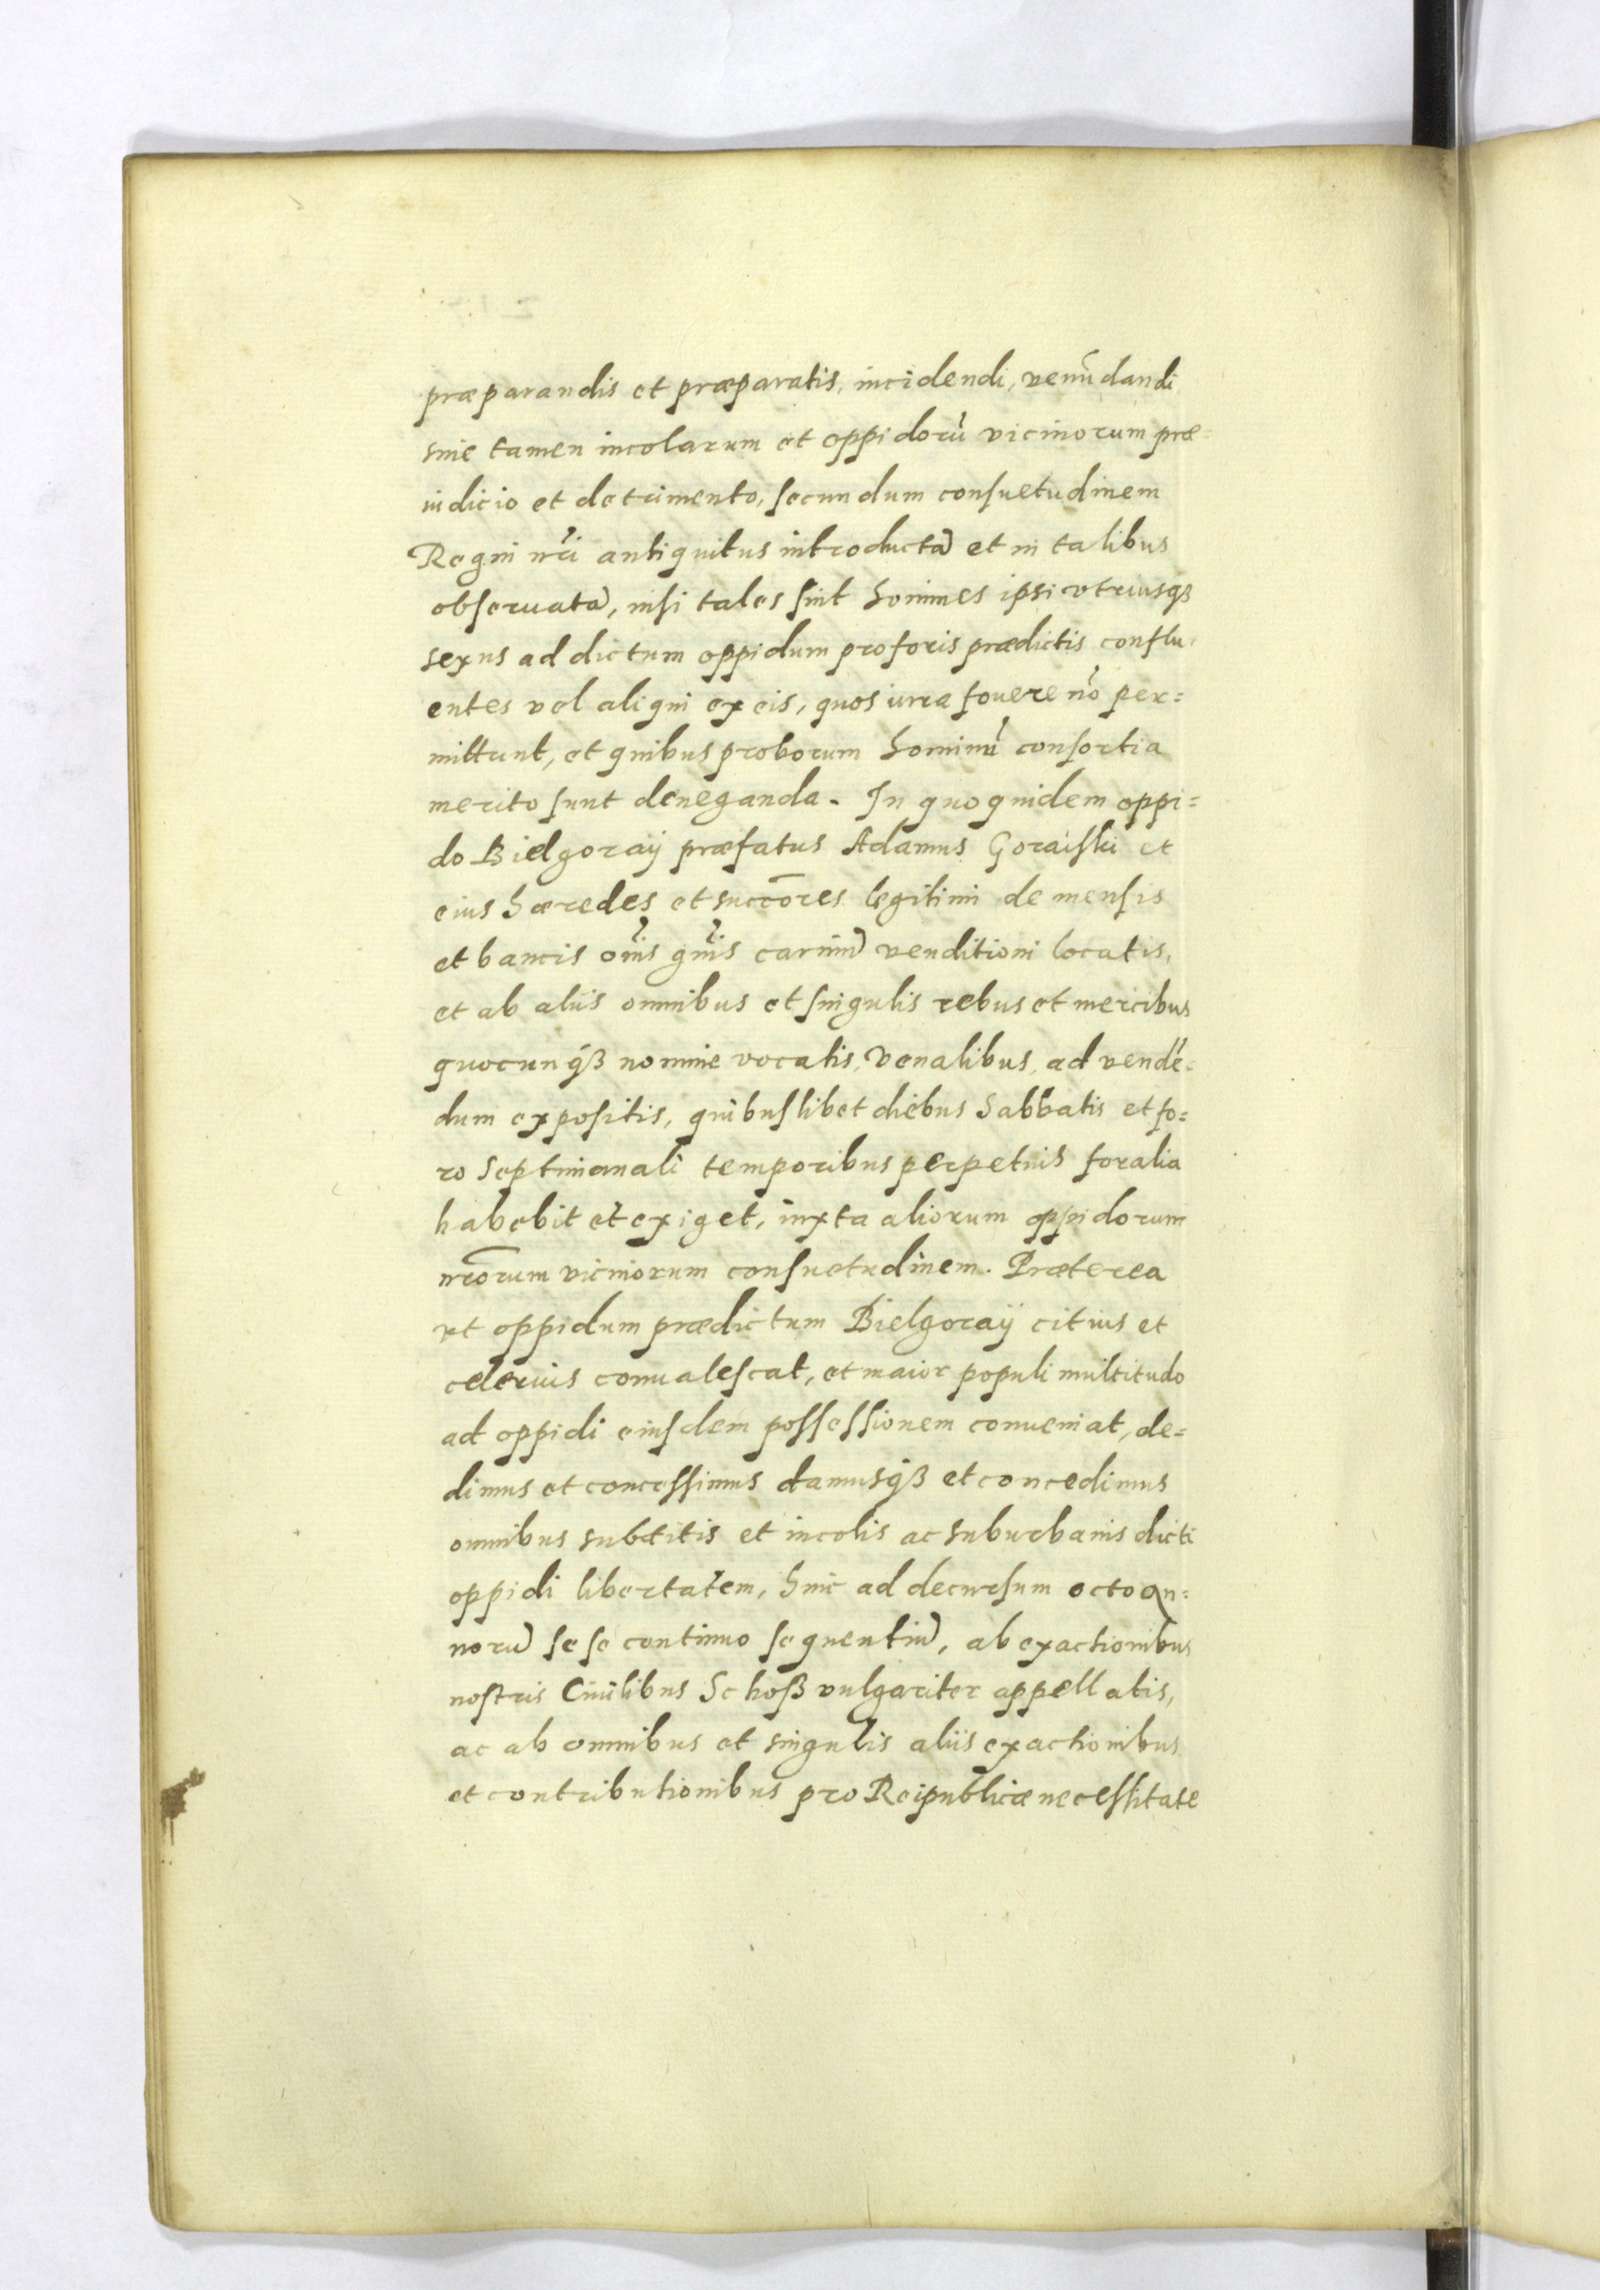 præparandis et præparatis, incidendi, venūdandi
sine tamen incolarum et oppidorū vicinorum præ-
iudicio et detrimento, secundum consuetudinem
Regni nrī antiquitus introductā et in talibus
obseruatā, nisi tales sint homines ipsi vtriusq3
sexus ad dictum oppidum pro foris prædictis conflu-
entes vel aliqui ex eis, quos iura fouere nō per=
mittunt, et quibus proborum hominū consortia
merito sunt deneganda. In quo quidem oppi=
do Bielgoraÿ præfatus Adamus Goraiski et
eius hæredes et succōres legitimi de mensis
et bancis oīnis quīs carniū venditioni locatis,
et ab aliis omnibus et singulis rebus et mercibus
quocunq3 nomine vocatis, venalibus, ad vendē=
dum expositis, quibuslibet diebus Sabbatis et fo=
ro Septimanali temporibus perpetuis foralia
habebit et exiget, iuxta aliorum oppidorum
nr̄orum vicinorum consuetudinem. Præterea
vt oppidum prædictum Bielgoraÿ citius et
celerius conualescat, et maior populi multitudo
ad oppidi eiusdem possessionem conueniat, de=
dimus et concessimus damusq3 et concedimus
omnibus subditis et incolis ac suburbanis dicti
oppidi libertatem, hinc ad decursum octo an=
norū sese continuo sequentiū, ab exactionibus
nostris Ciuilibus Schoß vulgariter appellatis,
ac ab omnibus et singulis aliis exactionibus
et contributionibus pro Reipublicæ necessitate